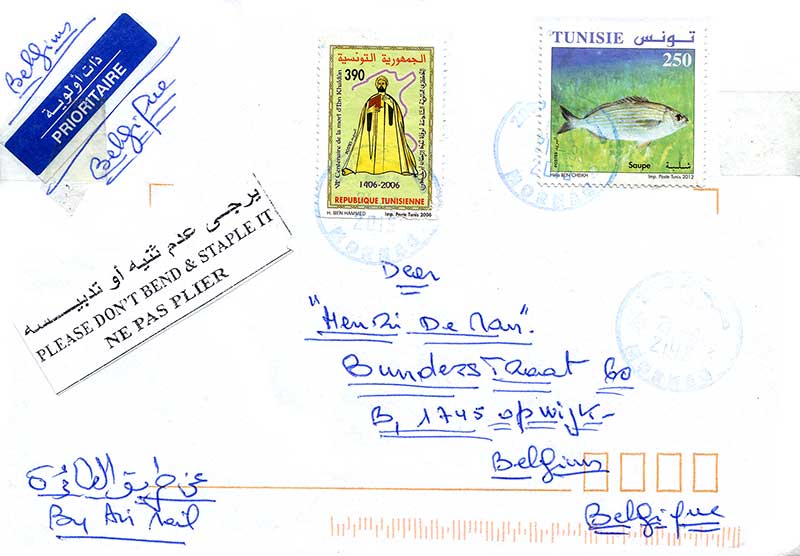 Belgium
ذات أولوية
PRIORITAIRE
Belgique
الجمهورية التونسية
390
VIe Centenaire de la mort d'Ibn Khaldoun
1406-2006
REPUBLIQUE TUNISIENNE
H. BEN HAMMED Imp. Poste Tunis 2006
TUNISIE تونس
250
Saupe شلبة
POSTES البريد
Imp. Poste Tunis 2012
MORNAG
MORNAG
يرجى عدم ثنيه أو تدبيسه
PLEASE DON'T BEND & STAPLE IT
NE PAS PLIER
Dear
"Henri De Man".
Bunderstraat 60
B, 1745 opwijk-
Belgium
Belgique
MORNAG
عن طريق الطائرة
By Air Mail